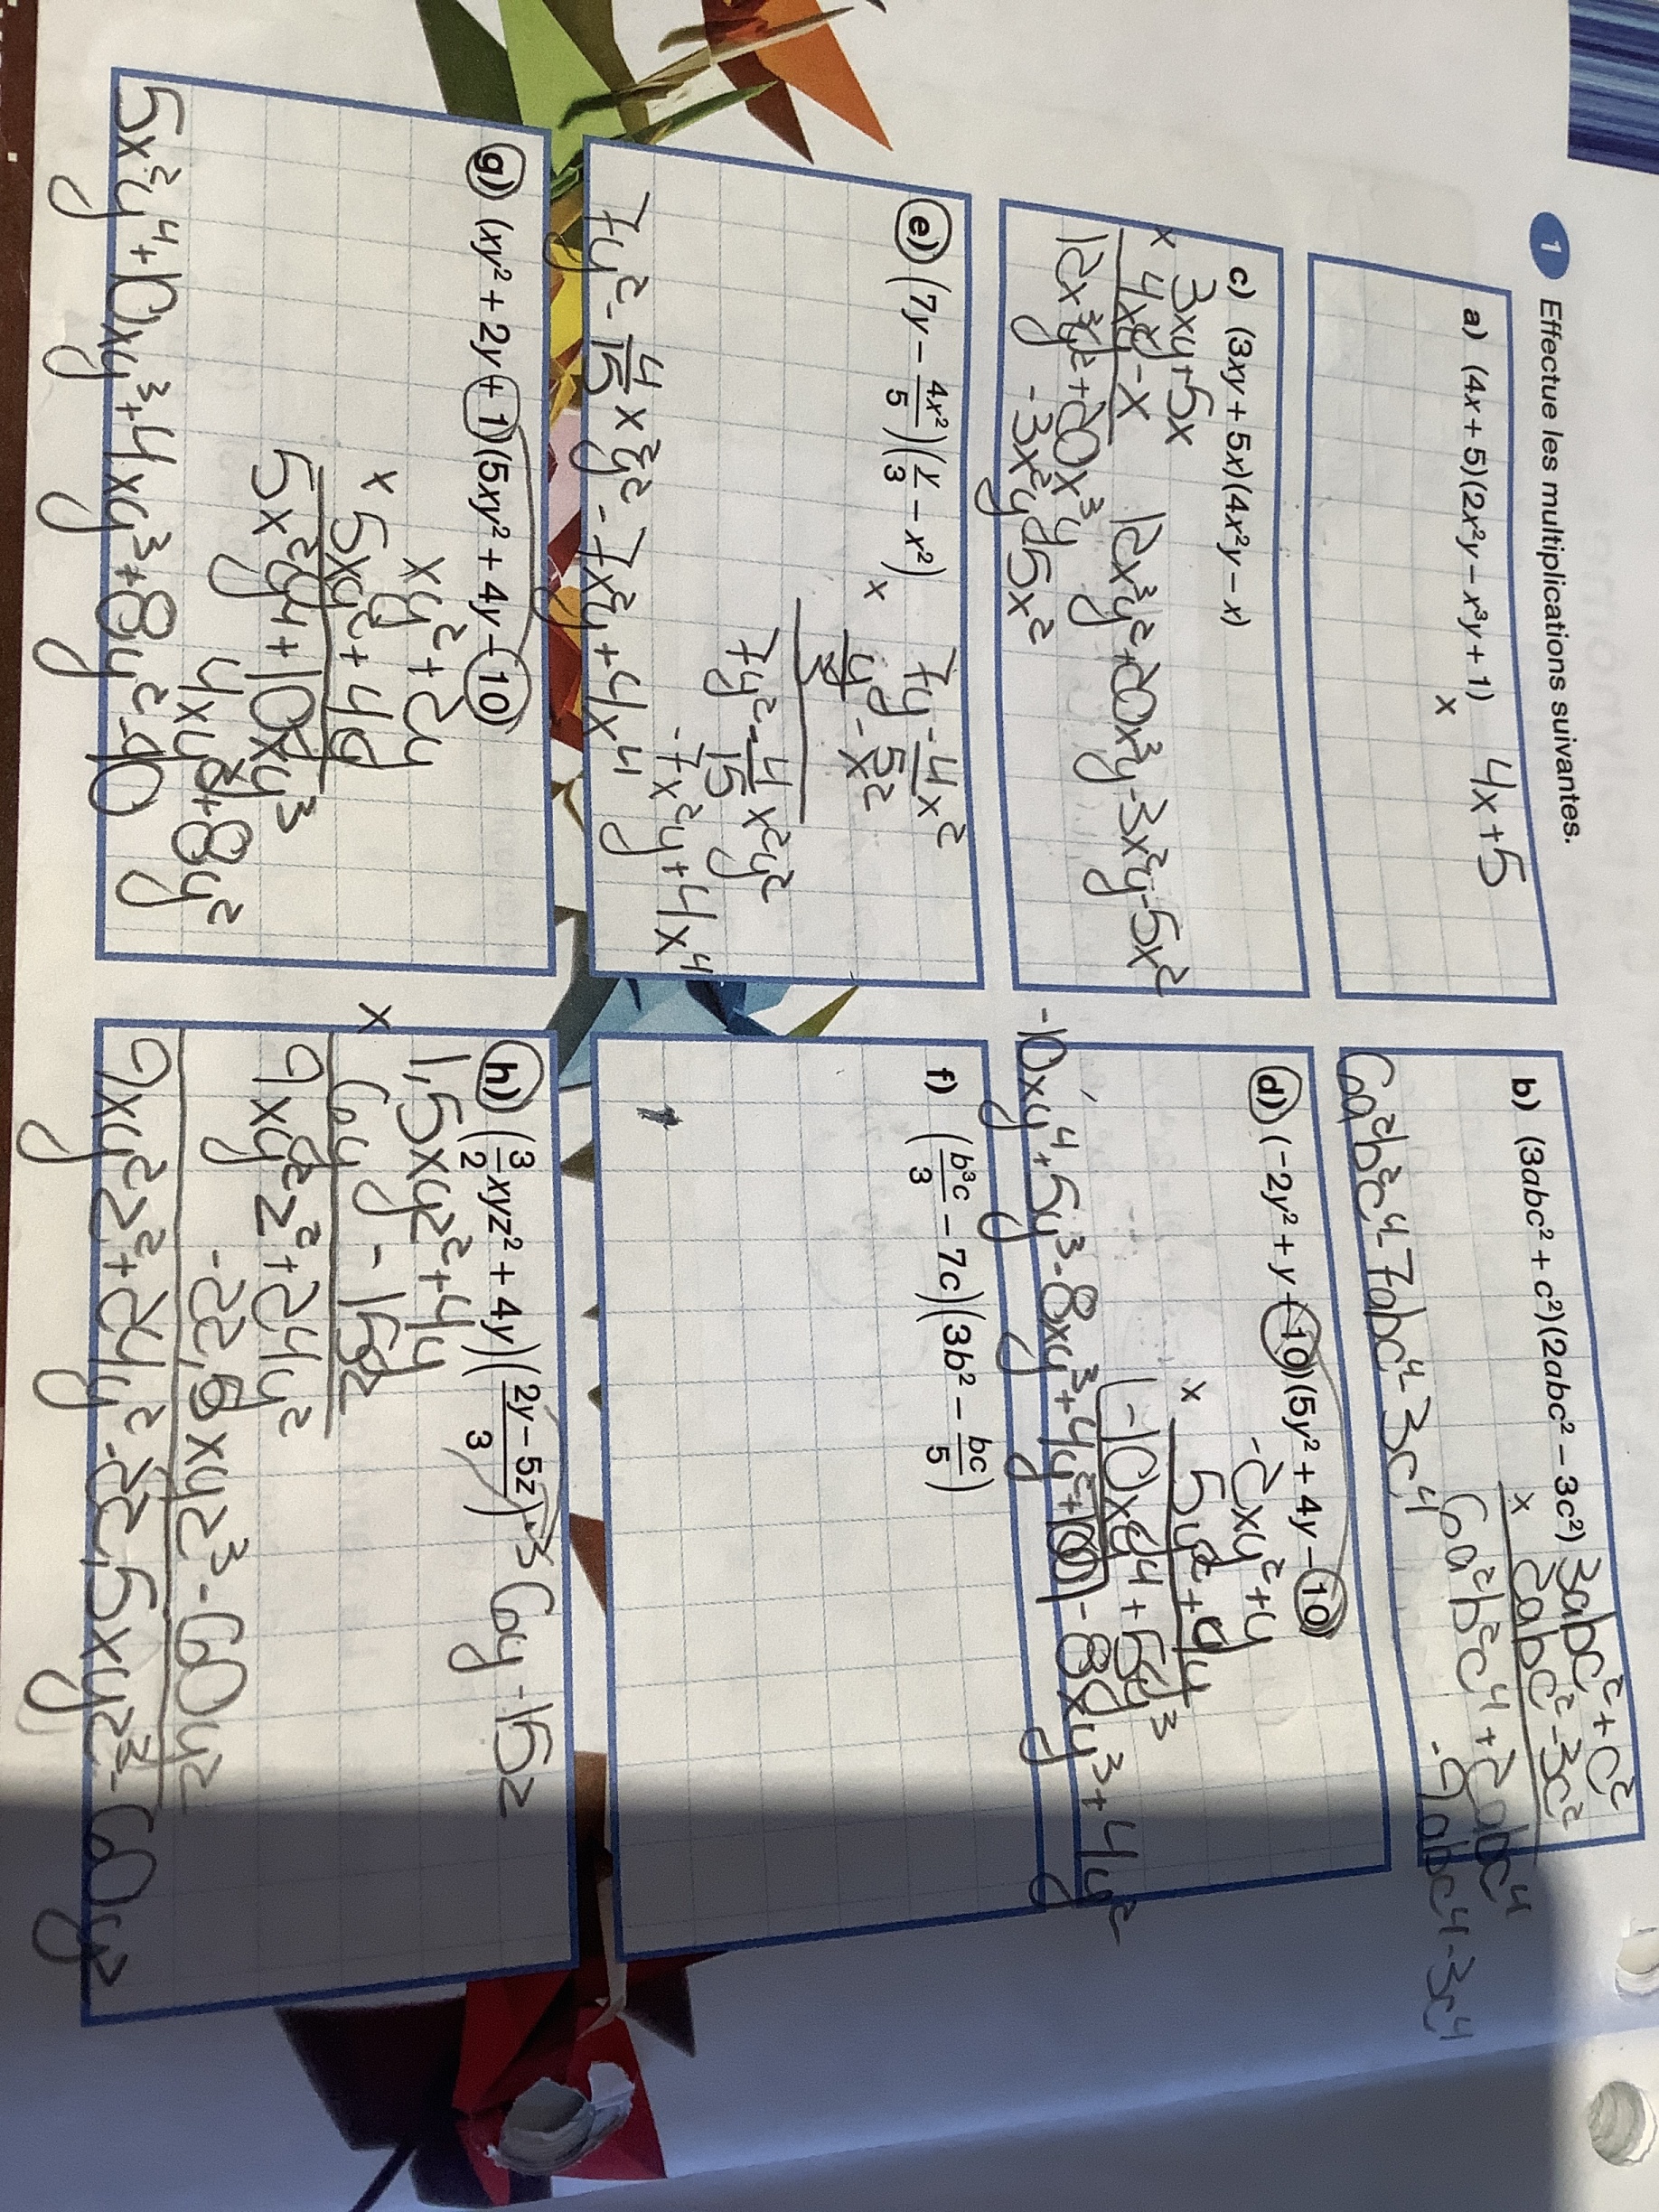 1 Effectue les multiplications suivantes.
a) (4x + 5)(2x²y – x³y + 1)
4x+5
x
b) (3abc² + c²)(2abc² – 3c²)
3abc²+c²
x 2abc²-3c²
6a²b²c⁴+2abc⁴
-9abc⁴-3c⁴
6a²b²c⁴-7abc⁴-3c⁴
c) (3xy + 5x)(4x²y – x)
3xy+5x
x 4x²y-x
12x³y²+20x³y
-3x²y-5x²
12x³y²+20x³y-3x²y-5x²
d) (–2y² + y + 10)(5y² + 4y – 10)
-2xy²+y
x 5y²+4y
-10xy⁴+5y³
-8xy³+4y²
-10xy⁴+5y³-8xy³+4y²+100
e) (7y – 4x²/5)(y/3 – x²)
7y-4/5x²
x y/3-x²
7y²-4/15x²y²
-7x²y+4x⁴
7y²-4/15x²y²-7x²y+4x⁴
f) (b³c/3 – 7c)(3b² – bc/5)
g) (xy² + 2y + 1)(5xy² + 4y – 10)
xy²+2y
x 5xy²+4y
5x²y⁴+10xy³
4xy³+8y²
5x²y⁴+10xy³+4xy³+8y²-10
h) (3/2 xyz² + 4y)((2y – 5z)/3) 6y-15z
1,5xyz²+4y
x 6y-15z
9xy²z²+24y²
-22,5xyz³-60yz
9xy²z²+24y²-22,5xyz³-60yz